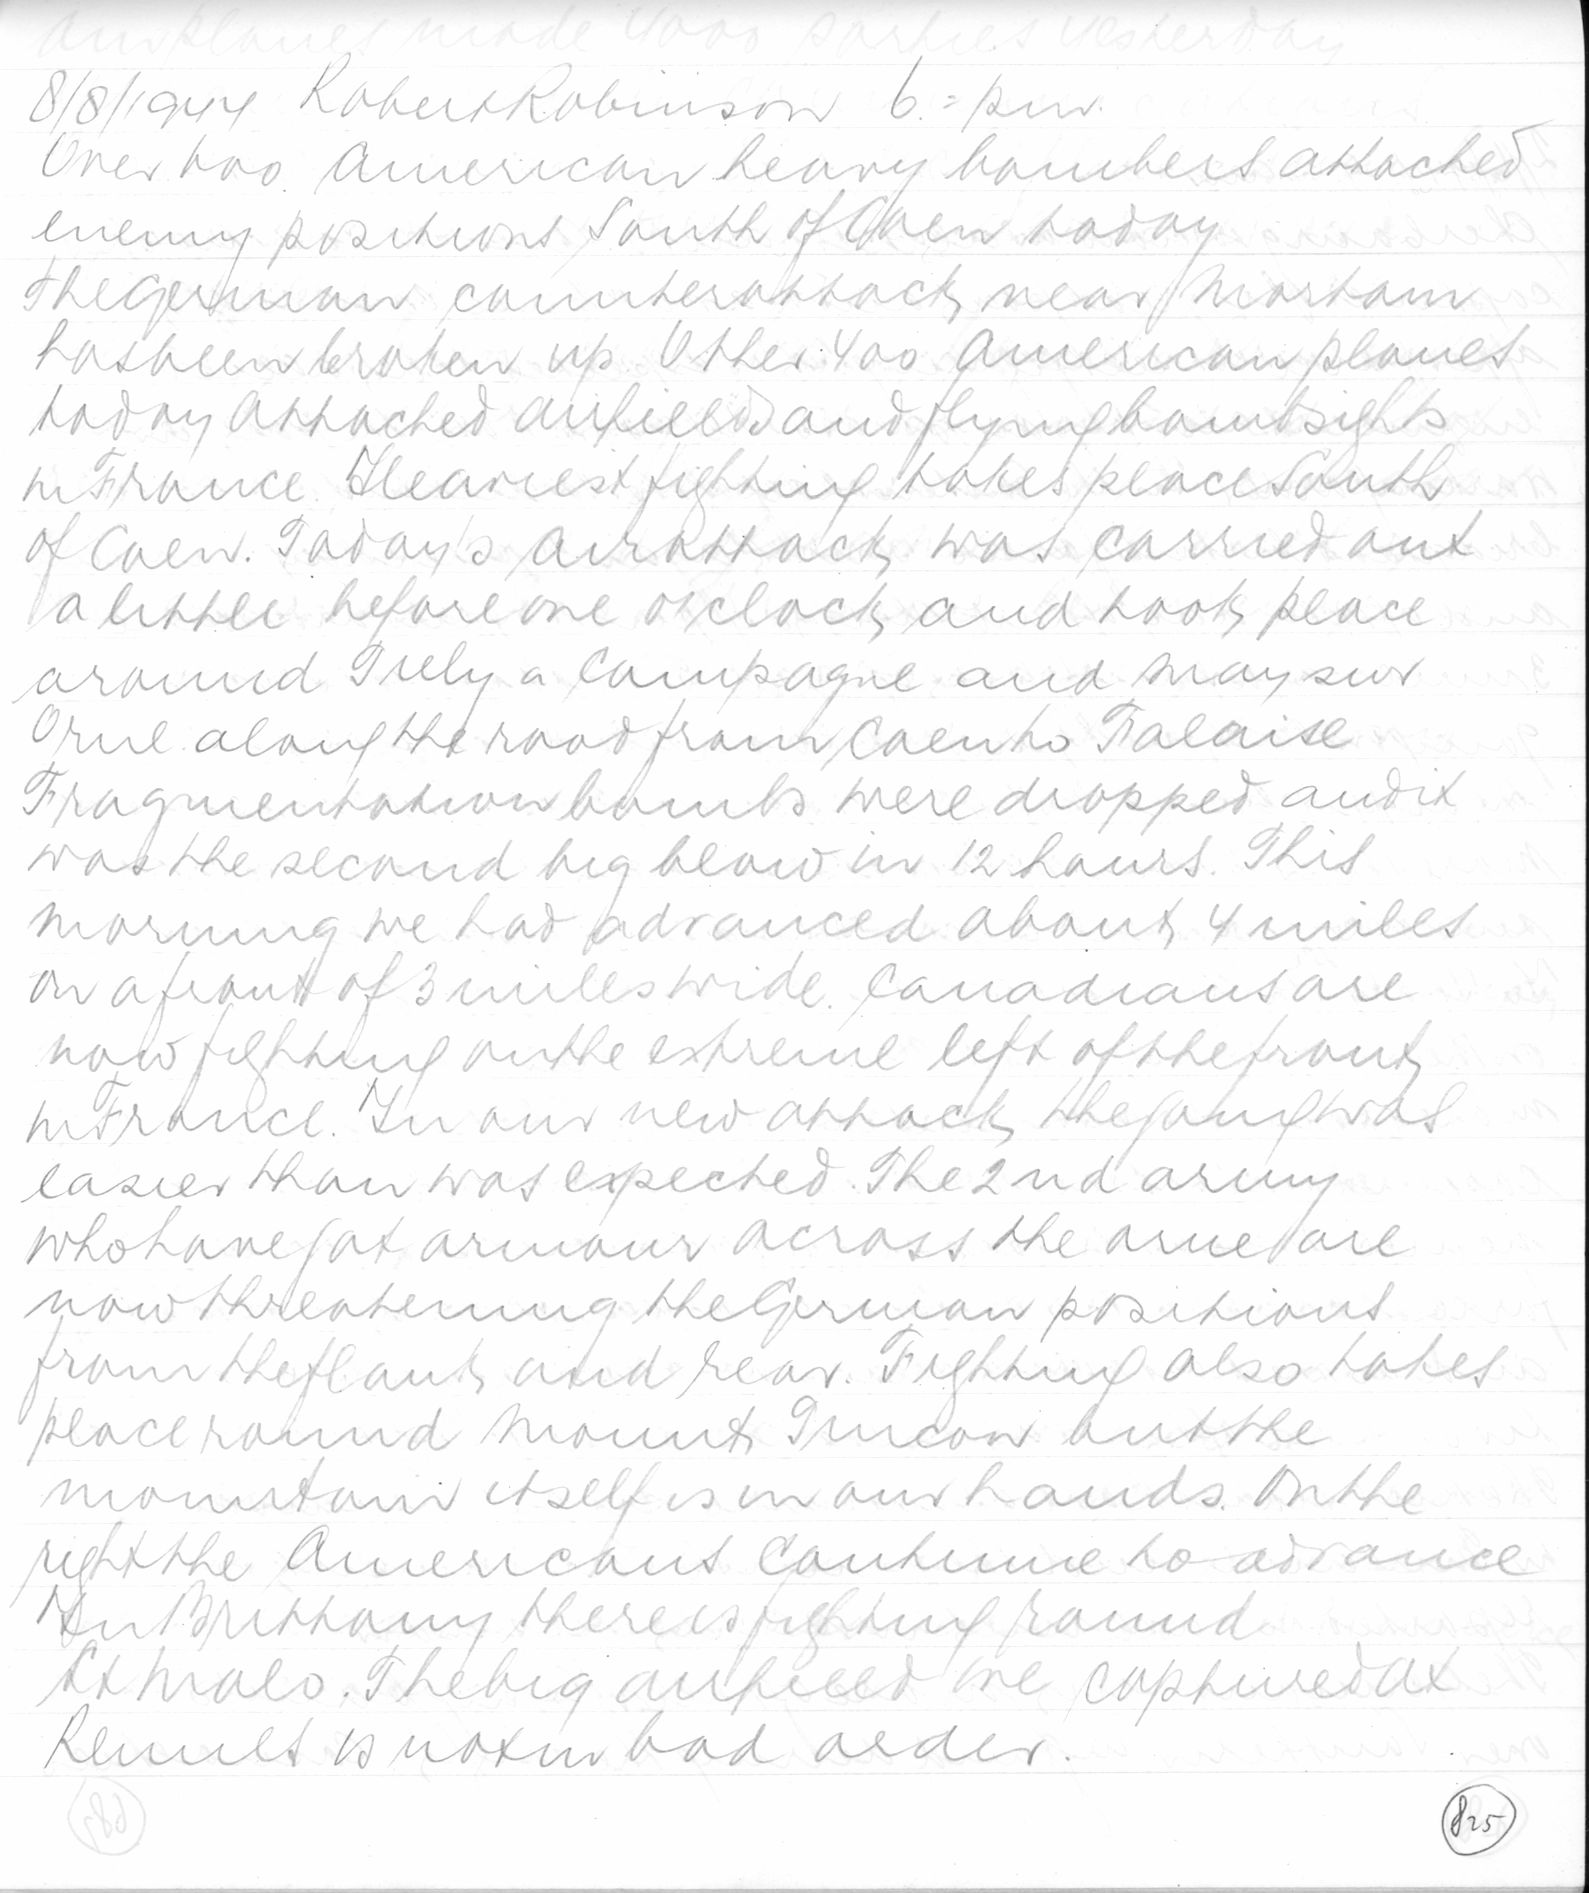 airplanes made 4000 sorties yesterday
8/8/1944 Robert Robinson 6.= pm.
Over 600 American heavy bombers attacked
enemy positions South of Caen today
The German counterattack near Mortain
has been broken up. Other 400 American planes
today attacked airfields and flying bombsights
in France. Heaviest fighting takes place South
of Caen. Today's air attack was carried out
a little before one o'clock and took place
around Trely a Campagne and May sur
Orne along the road from Caen to Falaise
Fragmentation bombs were dropped and it
was the second big blow in 12 hours. This
morning we had advanced about 4 miles
on a front of 3 miles wide. Canadians are
now fighting on the extreme left of the front
in France. In our new attack the going was
easier than was expected. The 2nd army
who have got armour across the orne are
now threatening the German positions
from the flank and rear. Fighting also takes
place round Mount Pincon but the
mountain itself is in our hands. On the
right the Americans continue to advance
In Brittany there is fighting round
St Malo. The big airfield we captured at
Rennes is not in bad order.
825